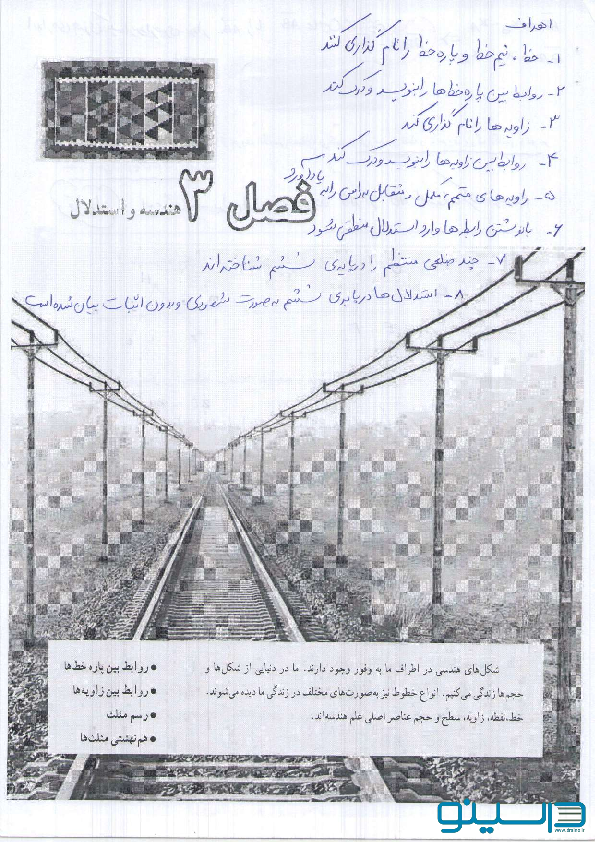 اهداف
۱- خط، نیم خط و پاره خط را نام گذاری کنند
۲- روابط بین پاره خط‌ها را بنویسید و درک کنند
۳- زاویه ها را نام گذاری کند
۴- روابط بین زاویه ها را بنویسد و درک کند
۵- زاویه های متمم، مکمل و متقابل به راس را به یاد آورد
۶- با نوشتن رابطه ها وارد استدلال منطقی شود
فصل ۳ هندسه و استدلال
۷- چند ضلعی منتظم را در پایه‌ی ششم شناخته اند
۸- استدلال ها در پایه ی ششم به صورت شهودی و بدون اثبات بیان شده است
شکل‌های هندسی در اطراف ما به وفور وجود دارند. ما در دنیایی از شکل‌ها و
حجم‌ها زندگی می‌کنیم. انواع خطوط نیز به‌صورت‌های مختلف در زندگی ما دیده می‌شوند.
خط، نقطه، زاویه، سطح و حجم عناصر اصلی علم هندسه‌اند.
● روابط بین پاره خط‌ها
● روابط بین زاویه‌ها
● رسم مثلث
● هم‌نهشتی مثلث‌ها
درسینو
www.drsino.ir